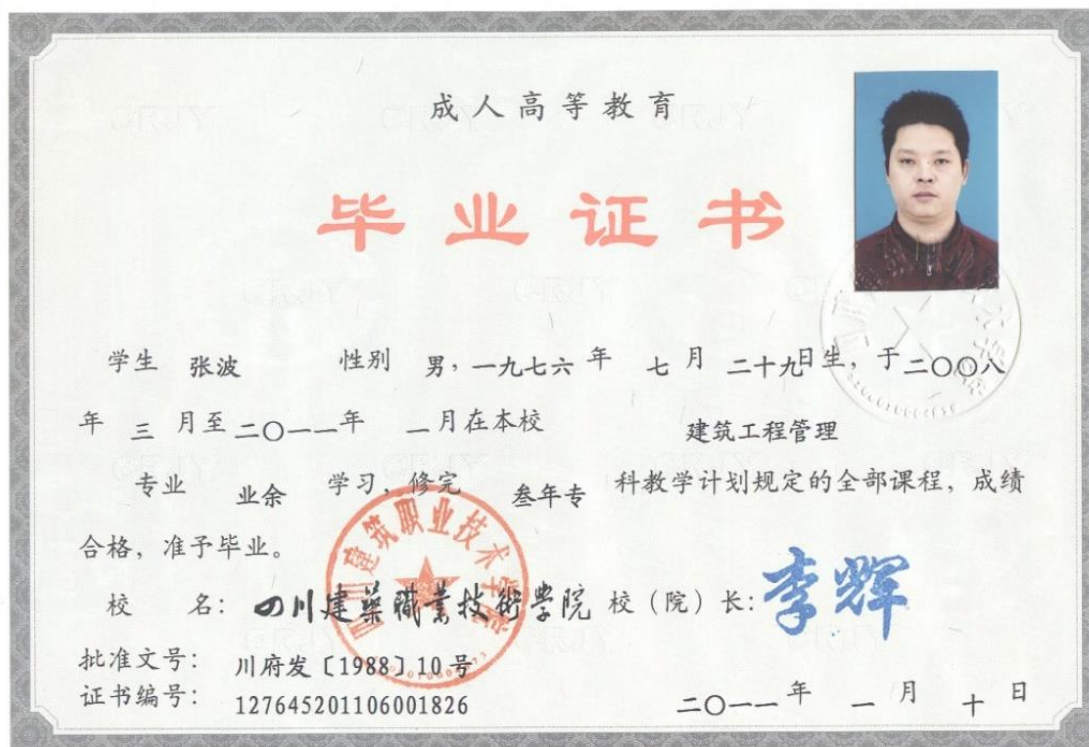 成人高等教育
毕业证书
学生 张波 性别 男，一九七六年 七月 二十九日生，于二〇〇八
年 三 月至二〇一一年 一月在本校 建筑工程管理
专业 业余 学习，修完 叁年专 科教学计划规定的全部课程，成绩
合格，准予毕业。
校 名：四川建築職業技術學院 校（院）长：李辉
四川建筑职业技术学院
批准文号：川府发〔1988〕10号
证书编号：127645201106001826
二〇一一年 一月 十日